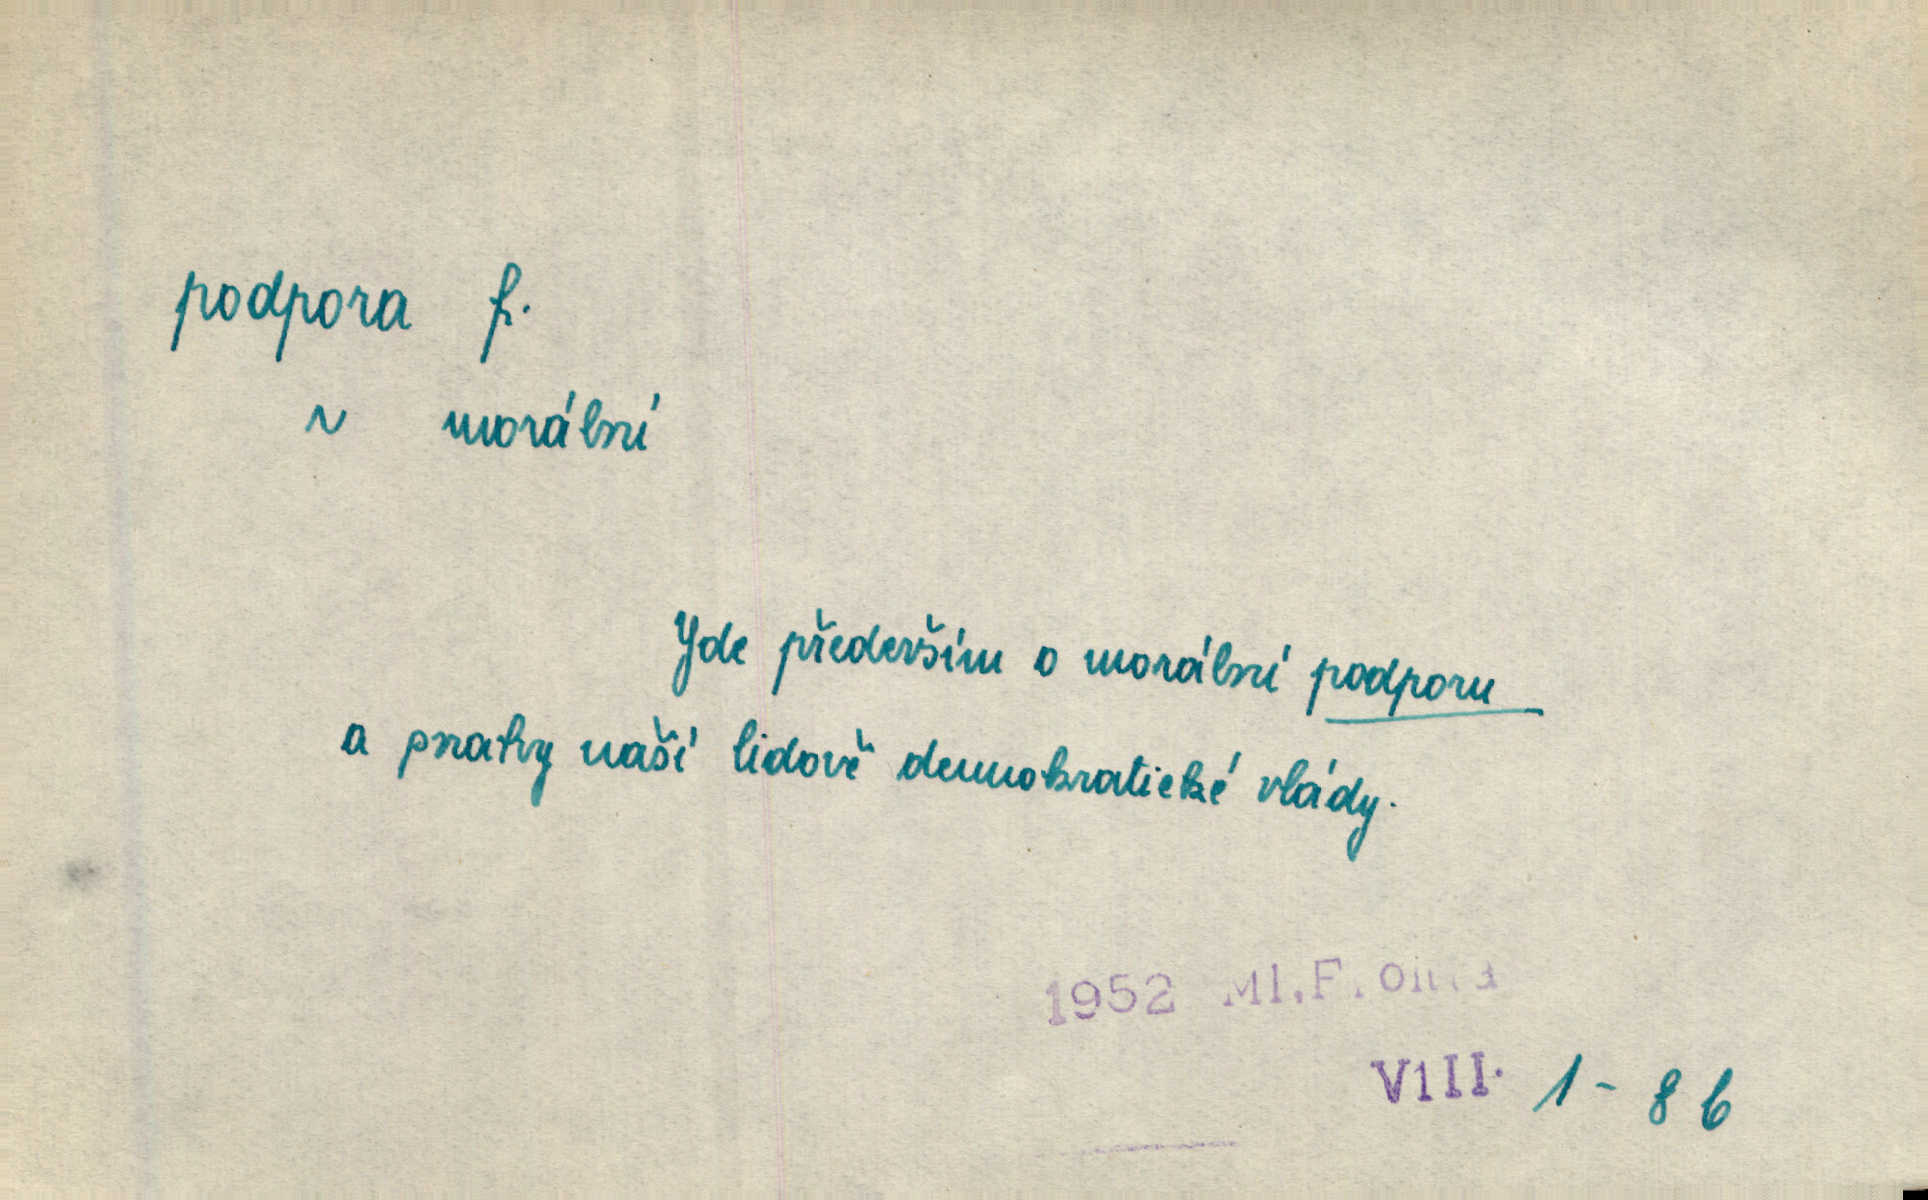 podpora f.
~ morální
Jde především o morální podporu
a snahy naší lidově demokratické vlády.
1952 Ml.F.
VIII. 1 - 8 b